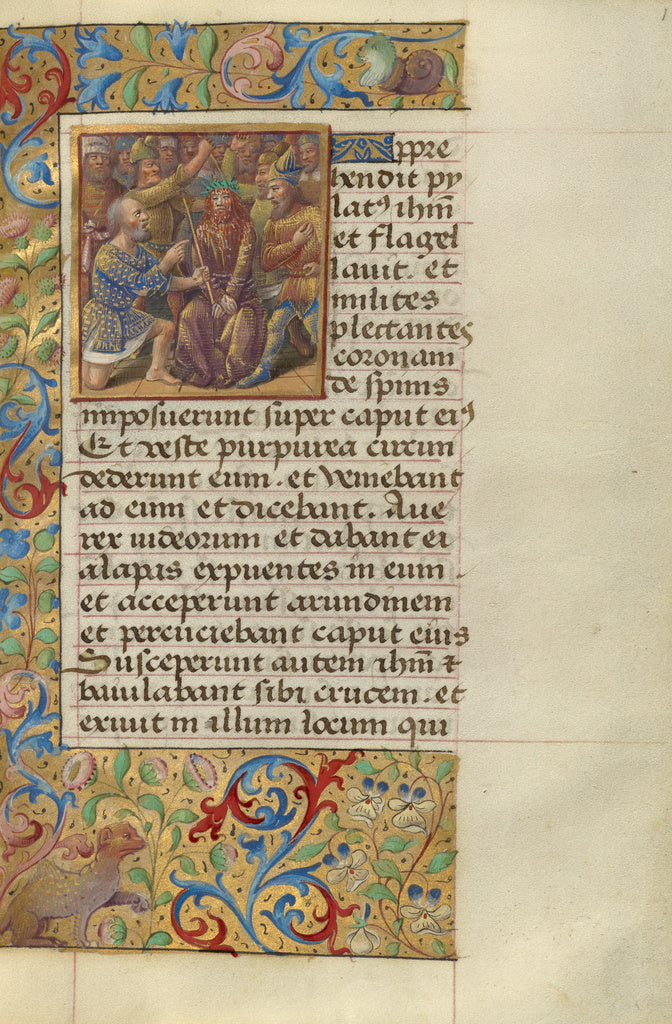 Appre
hendit py
latꝰ ihm̄
et flagel
lauit. et
milites
plectantes
coronam
de spinis
imposuerunt super caput eiꝰ
Et veste purpurea circun
dederunt eum. et veniebant
ad eum et dicebant. Aue
rex iudeorum et dabant ei
alapas expuentes in eum
et acceperunt arundinem
et percuciebant caput eius
Susceperunt autem ihm̄ ⁊
baiulabant sibi crucem. et
exiuit in illum locum qui